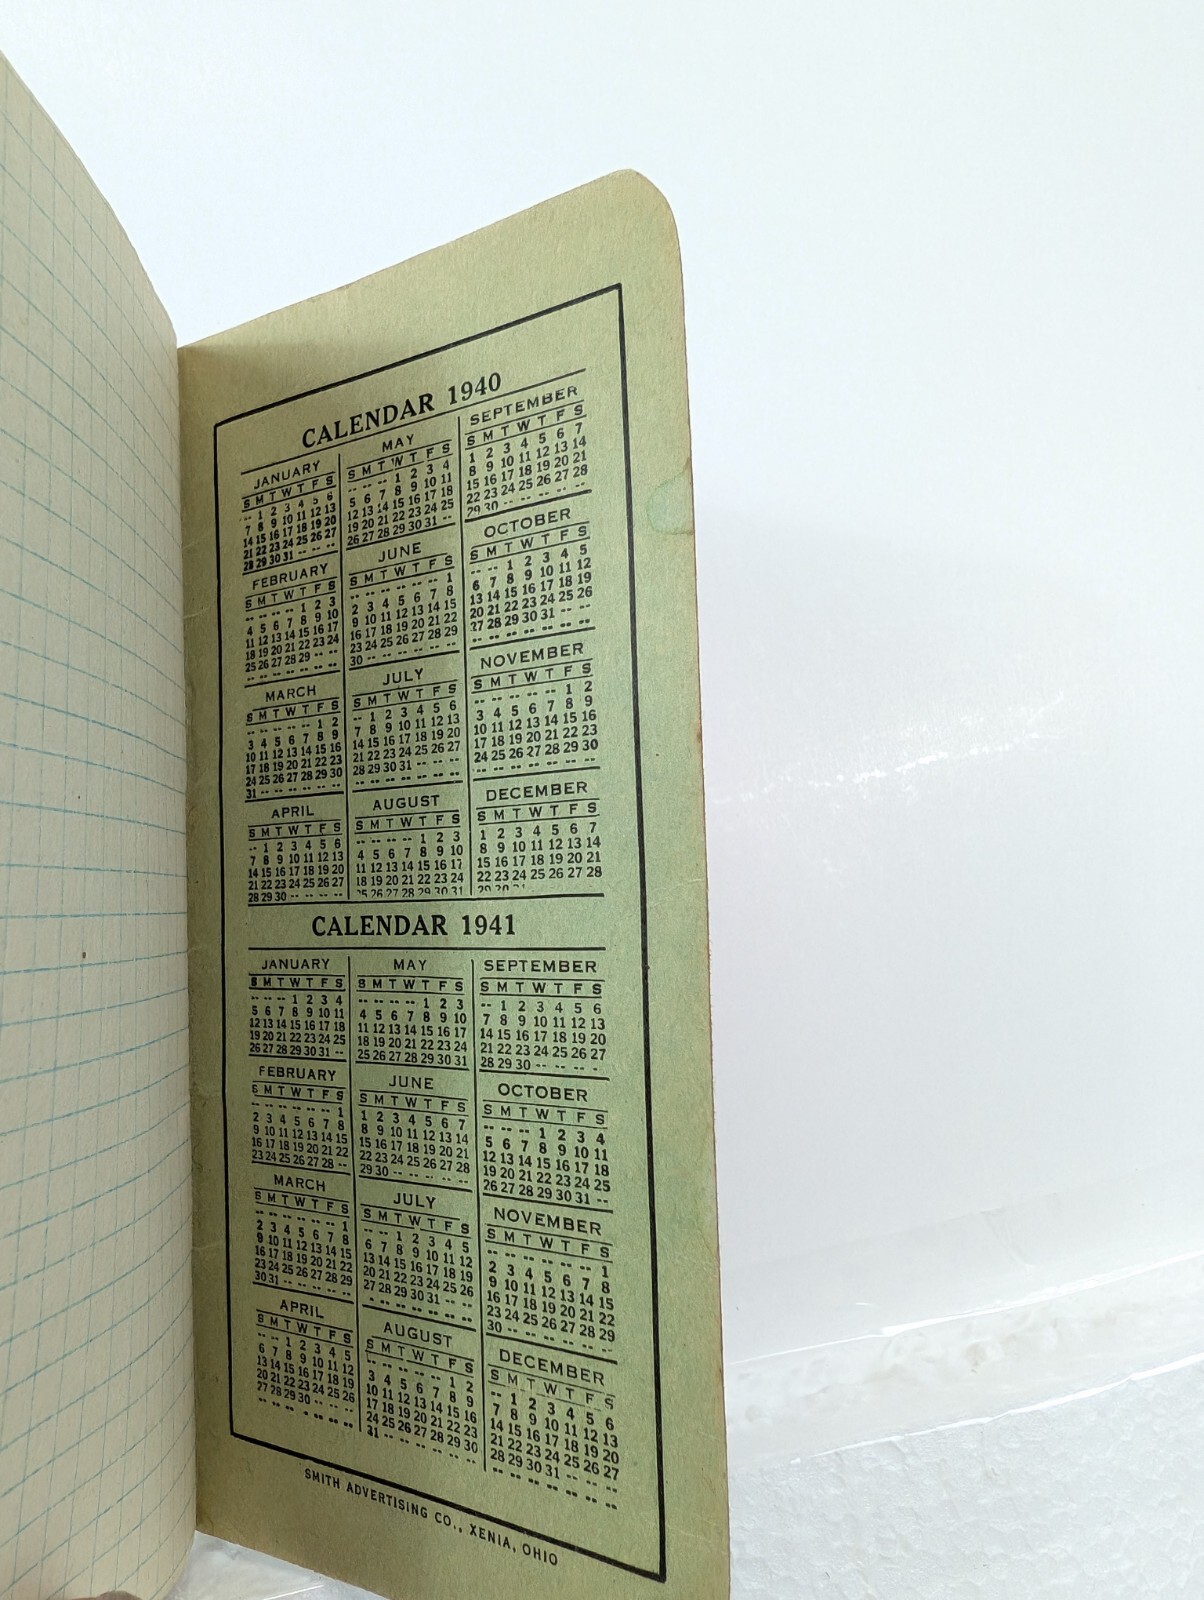 CALENDAR 1940
JANUARY
S M T W T F S
-- 1 2 3 4 5 6
7 8 9 10 11 12 13
14 15 16 17 18 19 20
21 22 23 24 25 26 27
28 29 30 31 -- -- --
FEBRUARY
S M T W T F S
-- -- -- -- 1 2 3
4 5 6 7 8 9 10
11 12 13 14 15 16 17
18 19 20 21 22 23 24
25 26 27 28 29 -- --
-- -- -- -- -- -- --
MARCH
S M T W T F S
-- -- -- -- -- 1 2
3 4 5 6 7 8 9
10 11 12 13 14 15 16
17 18 19 20 21 22 23
24 25 26 27 28 29 30
31 -- -- -- -- -- --
APRIL
S M T W T F S
-- 1 2 3 4 5 6
7 8 9 10 11 12 13
14 15 16 17 18 19 20
21 22 23 24 25 26 27
28 29 30 -- -- -- --
MAY
S M T W T F S
-- -- -- 1 2 3 4
5 6 7 8 9 10 11
12 13 14 15 16 17 18
19 20 21 22 23 24 25
26 27 28 29 30 31 --
JUNE
S M T W T F S
-- -- -- -- -- -- 1
2 3 4 5 6 7 8
9 10 11 12 13 14 15
16 17 18 19 20 21 22
23 24 25 26 27 28 29
30 -- -- -- -- -- --
JULY
S M T W T F S
-- 1 2 3 4 5 6
7 8 9 10 11 12 13
14 15 16 17 18 19 20
21 22 23 24 25 26 27
28 29 30 31 -- -- --
-- -- -- -- -- -- --
AUGUST
S M T W T F S
-- -- -- -- 1 2 3
4 5 6 7 8 9 10
11 12 13 14 15 16 17
18 19 20 21 22 23 24
25 26 27 28 29 30 31
SEPTEMBER
S M T W T F S
1 2 3 4 5 6 7
8 9 10 11 12 13 14
15 16 17 18 19 20 21
22 23 24 25 26 27 28
29 30 -- -- -- -- --
OCTOBER
S M T W T F S
-- -- 1 2 3 4 5
6 7 8 9 10 11 12
13 14 15 16 17 18 19
20 21 22 23 24 25 26
27 28 29 30 31 -- --
-- -- -- -- -- -- --
NOVEMBER
S M T W T F S
-- -- -- -- -- 1 2
3 4 5 6 7 8 9
10 11 12 13 14 15 16
17 18 19 20 21 22 23
24 25 26 27 28 29 30
-- -- -- -- -- -- --
DECEMBER
S M T W T F S
1 2 3 4 5 6 7
8 9 10 11 12 13 14
15 16 17 18 19 20 21
22 23 24 25 26 27 28
29 30 31
CALENDAR 1941
JANUARY
S M T W T F S
-- -- -- 1 2 3 4
5 6 7 8 9 10 11
12 13 14 15 16 17 18
19 20 21 22 23 24 25
26 27 28 29 30 31 --
FEBRUARY
S M T W T F S
-- -- -- -- -- -- 1
2 3 4 5 6 7 8
9 10 11 12 13 14 15
16 17 18 19 20 21 22
23 24 25 26 27 28 --
MARCH
S M T W T F S
-- -- -- -- -- -- 1
2 3 4 5 6 7 8
9 10 11 12 13 14 15
16 17 18 19 20 21 22
23 24 25 26 27 28 29
30 31 -- -- -- -- --
APRIL
S M T W T F S
-- -- 1 2 3 4 5
6 7 8 9 10 11 12
13 14 15 16 17 18 19
20 21 22 23 24 25 26
27 28 29 30 -- -- --
-- -- -- -- -- -- --
MAY
S M T W T F S
-- -- -- -- 1 2 3
4 5 6 7 8 9 10
11 12 13 14 15 16 17
18 19 20 21 22 23 24
25 26 27 28 29 30 31
JUNE
S M T W T F S
1 2 3 4 5 6 7
8 9 10 11 12 13 14
15 16 17 18 19 20 21
22 23 24 25 26 27 28
29 30 -- -- -- -- --
JULY
S M T W T F S
-- -- 1 2 3 4 5
6 7 8 9 10 11 12
13 14 15 16 17 18 19
20 21 22 23 24 25 26
27 28 29 30 31 -- --
-- -- -- -- -- -- --
AUGUST
S M T W T F S
-- -- -- -- -- 1 2
3 4 5 6 7 8 9
10 11 12 13 14 15 16
17 18 19 20 21 22 23
24 25 26 27 28 29 30
31 -- -- -- -- -- --
SEPTEMBER
S M T W T F S
-- 1 2 3 4 5 6
7 8 9 10 11 12 13
14 15 16 17 18 19 20
21 22 23 24 25 26 27
28 29 30 -- -- -- --
OCTOBER
S M T W T F S
-- -- -- 1 2 3 4
5 6 7 8 9 10 11
12 13 14 15 16 17 18
19 20 21 22 23 24 25
26 27 28 29 30 31 --
NOVEMBER
S M T W T F S
-- -- -- -- -- -- 1
2 3 4 5 6 7 8
9 10 11 12 13 14 15
16 17 18 19 20 21 22
23 24 25 26 27 28 29
30 -- -- -- -- -- --
DECEMBER
S M T W T F S
-- 1 2 3 4 5 6
7 8 9 10 11 12 13
14 15 16 17 18 19 20
21 22 23 24 25 26 27
28 29 30 31 -- -- --
-- -- -- -- -- -- --
SMITH ADVERTISING CO., XENIA, OHIO